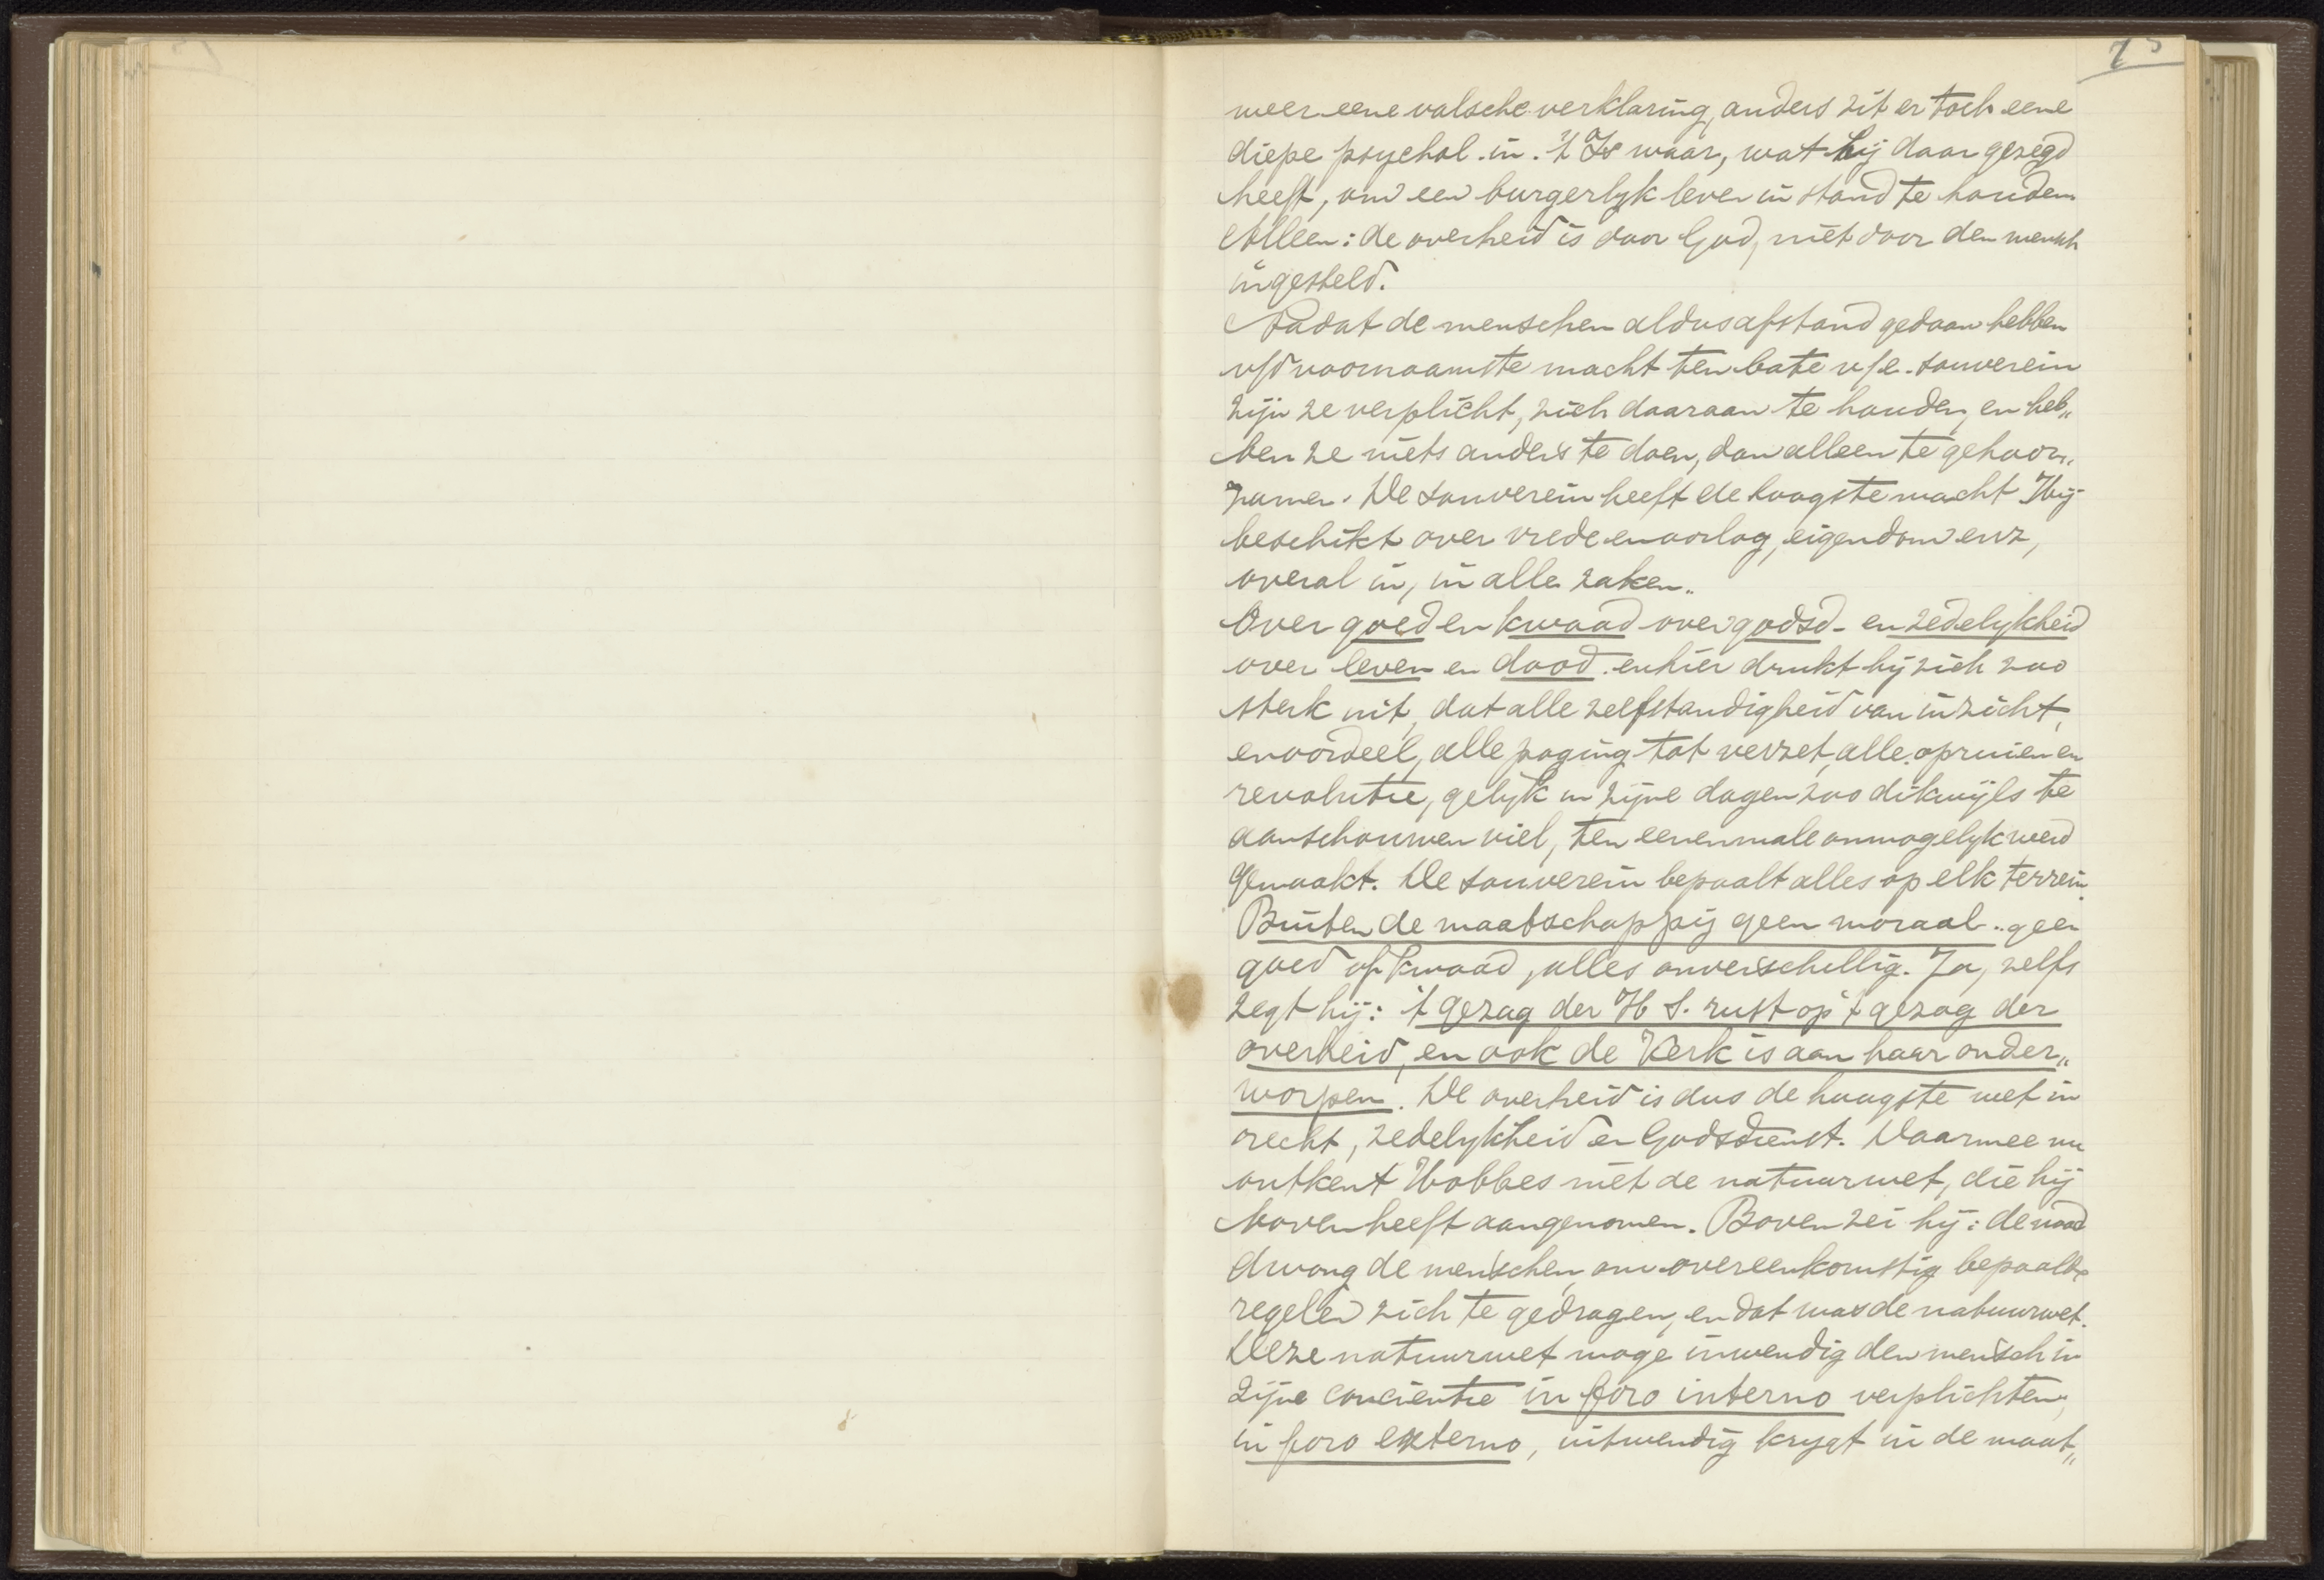 75
meer eene valsche verklaring, anders zit er toch eene
diepe psychol. in. 't Is waar, wat hij daar gezegd
heeft, om een burgerlyk leven in stand te houden
Alleen: de overheid is door God, niet door den mensch
ingesteld.
Nadat de menschen aldus afstand gedaan hebben
v/d voornaamste macht ten bate v/e souverein
zijn ze verplicht, zich daaraan te houden, en heb„
ben ze niets anders te doen, dan alleen te gehoor„
zamen. De souverein heeft de hoogste macht Hij
beschikt over vrede en oorlog, eigendom enz,
overal in, in alle zaken.
Over goed en kwaad over godsd- en zedelykheid
over leven en dood. en hier drukt hij zich zoo
sterk uit, dat alle zelfstandigheid van inzicht,
en oordeel, alle poging tot verzet, alle opruien en
revolutie, gelyk in zijne dagen zoo dikwijls te
aanschouwen viel, ten eenenmale onmogelyk werd
gemaakt. De souverein bepaalt alles op elk terrein.
Buiten de maatschappij geen moraal.. geen
goed of kwaad, alles onverschillig. Ja, zelfs
zegt hij: 't gezag der H S. rust op 't gezag der
overheid, en ook de Kerk is aan haar onder„
worpen. De overheid is dus de hoogste wet in
recht, zedelykheid en Godsdienst. Daarmee nu
ontkent Hobbes niet de natuurwet, die hij
boven heeft aangenomen. Boven zei hij: de nood
dwong de menschen, om overeenkomstig bepaalde
regelen zich te gedragen, en dat was de natuurwet.
Deze natuurwet moge inwendig den mensch in
zijne conciëntie in foro interno verplichten,
in foro externo, uitwendig krygt in de maat„